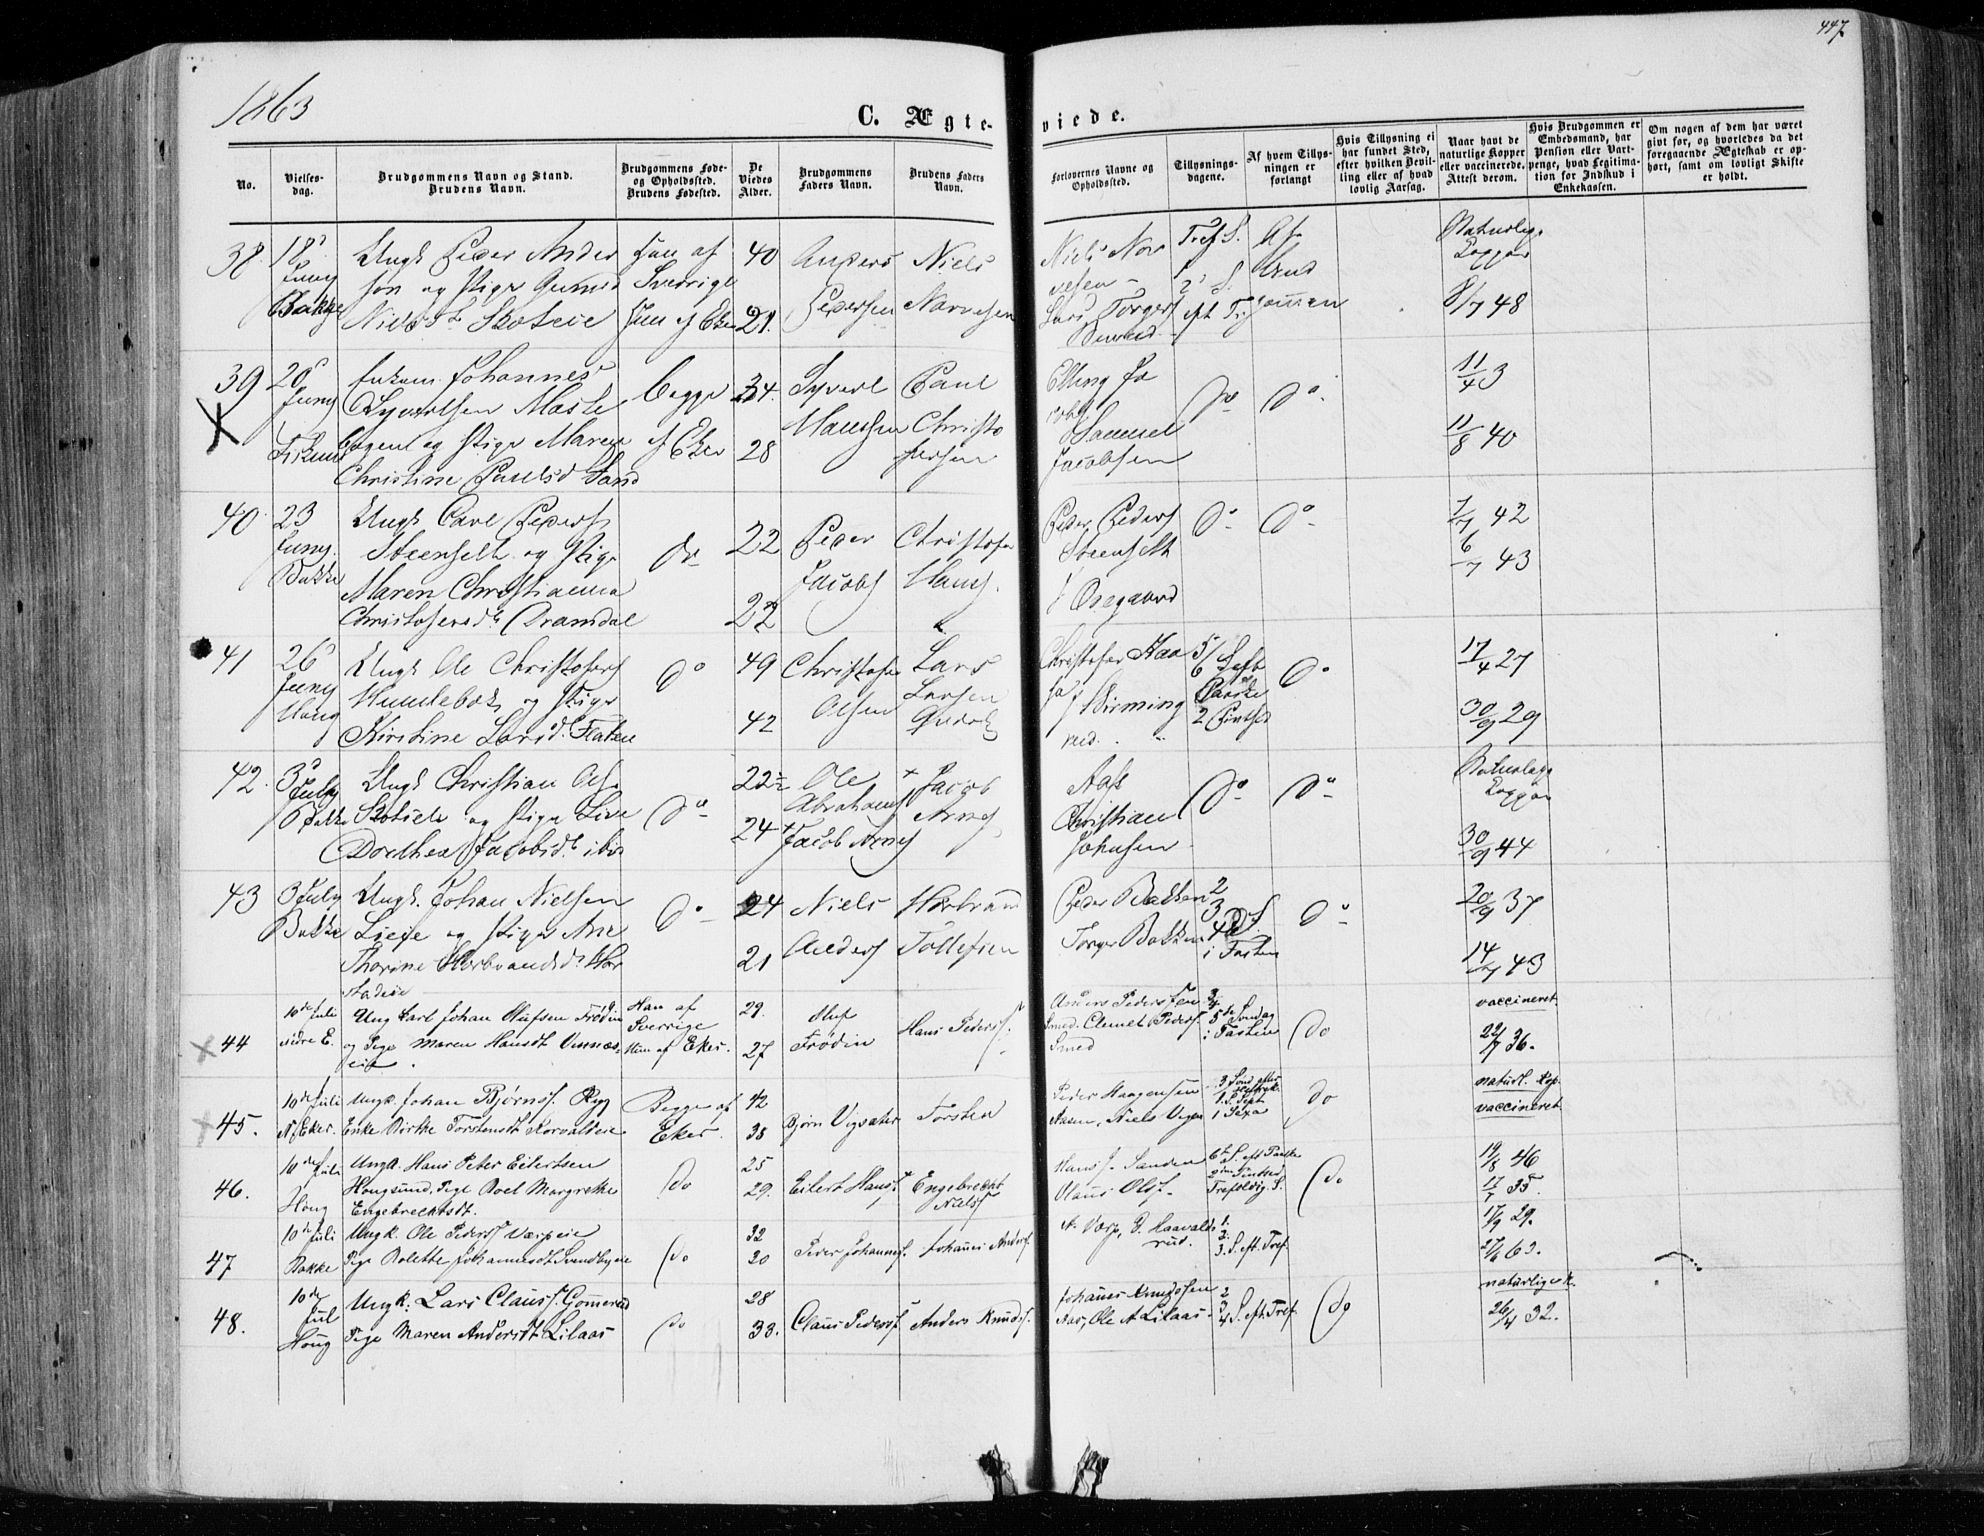 1863
447
C. Ægte-
viede.
No.
Vielses-
dag.
Brudgommens Navn og Stand.
Brudens Navn.
Brudgommens Føde-
og Opholdssted.
Brudens Fødested.
De
Viedes
Alder.
Brudgommens
Faders Navn.
Brudens Faders
Navn.
Forlovernes Navne og
Opholdssted.
Tillysnings-
dagene.
Af hvem Tillys-
ningen er
forlangt
Hvis Tillysning ei
har fundet Sted,
efter hvilken Bevil-
ling eller af hvad
lovlig Aarsag.
Naar havt de
naturlige Kopper
eller vaccinerede.
Attest derom.
Hvis Brudgommen er
Embedsmand, har
Pension eller Vart-
penge, hvad Legitima-
tion for Indskud i
Enkekassen.
Om nogen af dem har været
gift før, og hvorledes da det
foregaaende Ægteskab er op-
hørt, samt om lovligt Skifte
er holdt.
38
18
Juny
Bakke
Ungk Peder Ander
sen og Pige Gunild
Nielsd. Skoteie
Han af
Sverrige
Hun af Eker
40
21
Anders
Pedersen
Niels
Narvesen
Niels Nar
vesen
Lars Torgers
Tref S.
2 S.
eft Tr
Af
Brud
gommen
Naturlige
Kopper
8/7 48
39
20
Juny
Fiskum
Enkem Johannes
Syvertsen Masle
bogen og Pige Maren
Christine Paulsd Sand
begge
af Eker
34.
28
Syvert
Hanssen
Paul
Christo
fersen
Elling Ja
cobs
Samuel
Jacobsen
do
do
11/4 3
11/8 40
40
23
Juny
Bakke
Ungk Carl Peders
Steenselt og Pige
Maren Christianna
Christofersd. Dramdal
do
22
22
Peder
Jacobs
Christofer
Hans
Peder Peders
Steenselt
do
do
7/7 42
6/7 43
41
26
Juny
Haug
Ungk Ole Christofers
Humlebæk og Pige
Kirstine Larsd. Flaten
do
49
42
Christofer
Olsen
Lars
Larsen
Christofer Haa
5/6 S eft
Paaske
2 Pintse
do
17/4 27
30/9 29
42.
3
July
Bakke
Ungk Christian Ols
Skotselv og Pige Live
Dorthea Jacobsd. ibid
do
22½
24
Ole
Abrahams
+ Jacob Arnes
+ Jacob
Arnes
Aass
Christian
Johnsen
do
do
Naturlige
Kopper
30/9 44
43
3 July
Bakke
Ungk. Johan Nielsen
Lieeie og Pige Ane
Thorine Herbrandsd. Hor
stadeie
do
24
21
Niels
Anders
Herbrand
Tollefsen
Peder Bakken
Torger Bakken
2
3
4 S.
i Fasten
do
20/9 37
14/7 43
44
10de Juli
nedre E.
Ung Carl Johan Olufsen Frödin
og Pige Maren Hansdt Vinnæs-
eie.
Han af
Sverrige
Hun af Eker.
29.
27
Oluf
Frödin
Hans Peders.
Anders Pederssen
Smed. Clemet Peders.
Smed
3/4
5te Søndag
i Fasten
do
vaccineret
22/7 36.
45.
10de Juli
N. Eker.
Ungk. Johan Bjørns. Ryg
Enke Birthe Torstensdt Korvaldeie
Begge af
Eker.
42
38
Bjørn Vigsæter
Torsten
Peder Haagensen
Aasen, Niels Vegn
3 Sond efter
Hell3k.
1. S. Sept
1 Sexa
do
naturl. Kop.
vaccineret
46.
10de Juli
Houg
Ungk. Hans Peter Eilertsen
Hougsund, Pige Boel Margrethe
Engebrechtsdt.
do
25
29.
Eilert Hans.
Engebrecht
Niels.
Hans J. Sanden
Olaus Ols.
6te S. eft Paaske
2den Pintsed
Trefoldig. S.
do
19/8 46
17/7 35.
47
10de Juli
Bakke
Ungk. Ole Peders. Værpeie
Pige Rolette Johannesdt Svendbyeie
do
32
20
Peder Johannes.
Johannes Anders.
A. Værp, P. Haavalds
rud.
1.
2.
3. S. eft. Tref.
17/9 29.
48.
10de
Jul
Houg
Ungk. Lars Clauss. Gommerud
Pige Maren Andersdt Lilaas
do
28
38.
Claus Peders.
Anders Knuds.
Johannes Knudssen
Aas, Ole A Lilaas.
2
3
4 S. eft Tref.
do
naturlige k.
26/4 32.